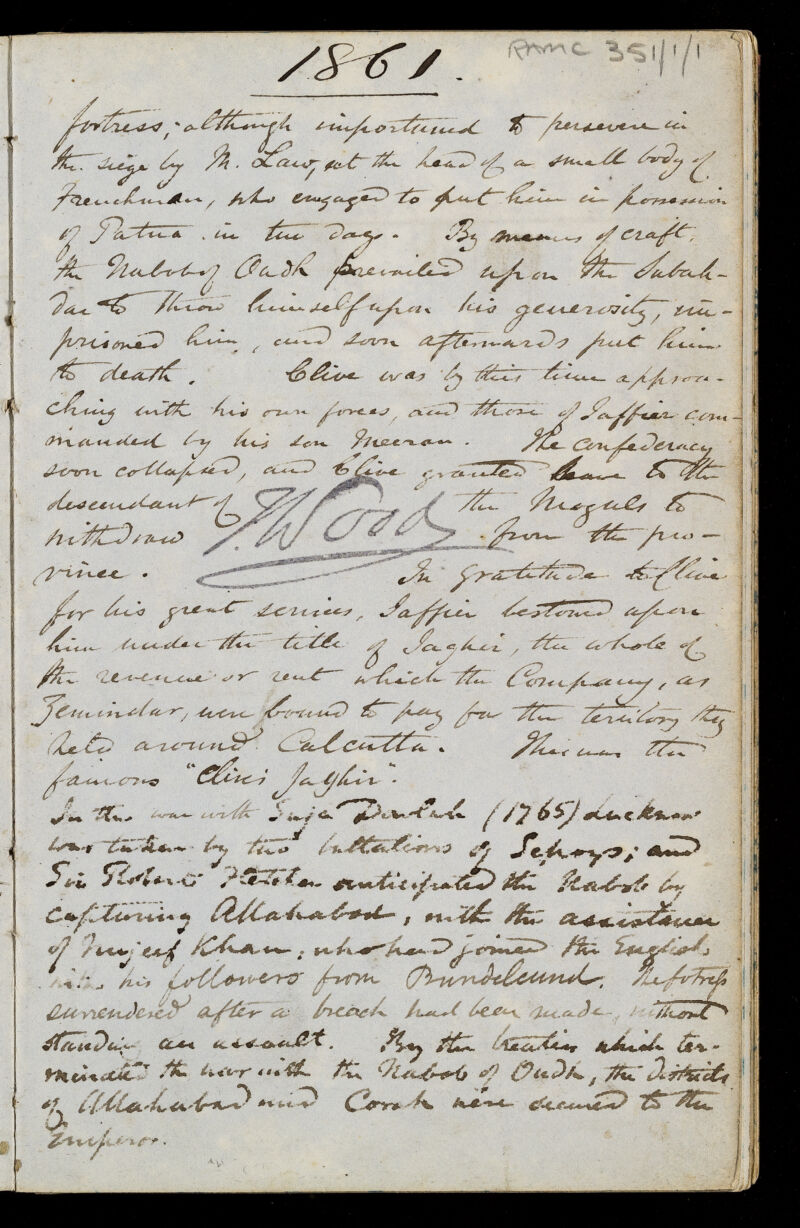 1861.
RAMC 351/1/1
fortress; although importuned to persevere in
the siege by M. Law, at the head of a small body of
Frenchman, who engaged to put him in possession
of Patna in two days. By means of craft,
the Nabob of Oudh prevailed upon the Subah-
dar to throw himself upon his generosity, im-
prisoned him, and soon afterwards put him
to death. Clive was by this time approa-
ching with his own forces, and those of Jaffier com-
manded by his son Meeran. The confederacy
soon collapsed, and Clive granted leave to the
descendant of the Moguls to
withdraw from the pro-
vince. In gratitude to Clive
J. Wood
for his great services, Jaffier bestowed upon
him under the title of Jaghir, the whole of
the revenue or rent which the Company, as
Zemindar, were bound to pay for the territory they
held around Calcutta. This was the
famous "Clive's Jaghir".
In the war with Suja Dowlah (1765) Lucknow
was taken by two battalions of Sepoys; and
Sir Robert Fletcher anticipated the Nabob by
capturing Allahabad, with the assistance
of Nujeef Khan, who had joined the English
with his followers from Bundelcund. The fortress
surrendered after a breach had been made, without
standing an assault. By the treaties which ter-
minated the war with the Nabob of Oudh, the districts
of Allahabad and Corah were secured to the
Emperor.